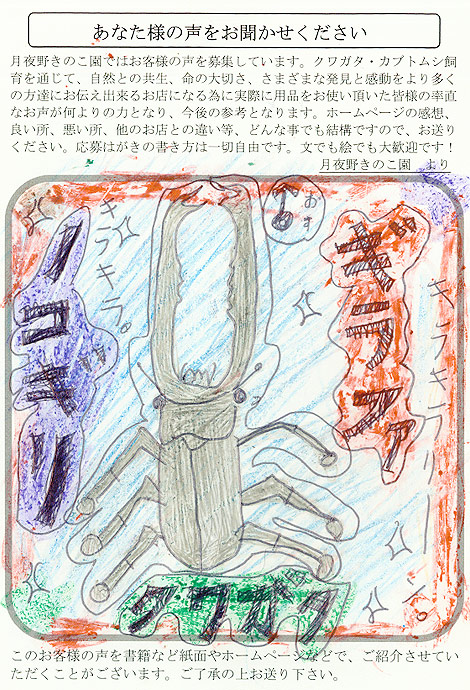 あなた様の声をお聞かせください
月夜野きのこ園ではお客様の声を募集しています。クワガタ・カブトムシ飼
育を通じて、自然との共生、命の大切さ、さまざまな発見と感動をより多く
の方達にお伝え出来るお店になる為に実際に用品をお使い頂いた皆様の率直
なお声が何よりの力となり、今後の参考となります。ホームページの感想、
良い所、悪い所、他のお店との違い等、どんな事でも結構ですので、お送り
ください。応募はがきの書き方は一切自由です。文でも絵でも大歓迎です！
月夜野きのこ園　より
キラキラリーン。
ギラファ
おす
キラキラ。
ノコギリ
クワガタ
このお客様の声を書籍など紙面やホームページなどで、ご紹介させてい
ただくことがございます。ご了承の上お送り下さい。